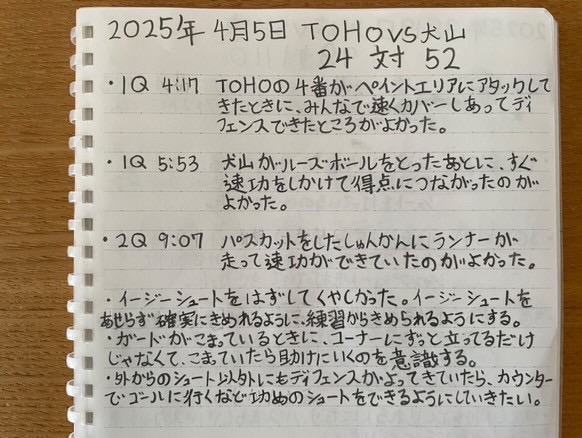 2025年 4月5日 TOHO VS 犬山
24 対 52
・1Q 4:17 TOHOの4番がペイントエリアにアタックして
きたときに、みんなで速くカバーしあってディ
フェンスできたところがよかった。
・1Q 5:53 犬山がルーズボールをとったあとに、すぐ
速攻をしかけて得点につながったのが
よかった。
・2Q 9:07 パスカットをしたしゅんかんにランナーが
走って速攻ができていたのがよかった。
・イージーシュートをはずしてくやしかった。イージーシュートを
あせらず確実にきめれるように、練習からきめられるようにする。
・ガードがこまっているときに、コーナーにずっと立ってるだけ
じゃなくて、こまっていたら助けにいくのを意識する。
・外からのシュート以外にもディフェンスがよってきていたら、カウンター
でゴールに行くなど攻めのシュートをできるようにしていきたい。